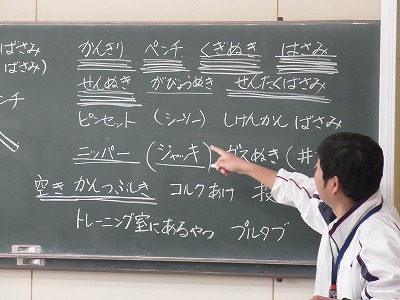 ばさみ かんきり ペンチ くぎぬき はさみ
ばさみ) せんぬき がびょうぬき せんたくばさみ
ンチ ピンセット (シーソー) しけんかんばさみ
ニッパー (ジャッキ) ガスぬき (井
空き かんつぶしき コルクあけ 技
トレーニング室にあるやつ プルタブ